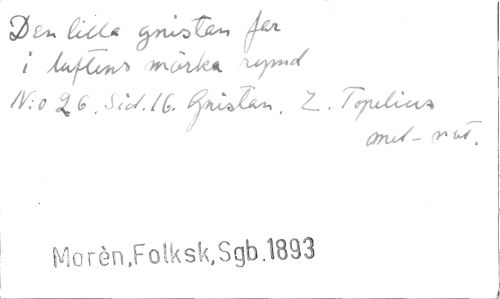 Den lilla gnistan far
i luftens mörka rymd
N:o 26. Sid. 16. Gnistan. Z. Topelius
med not.
Morèn,Folksk,Sgb.1893